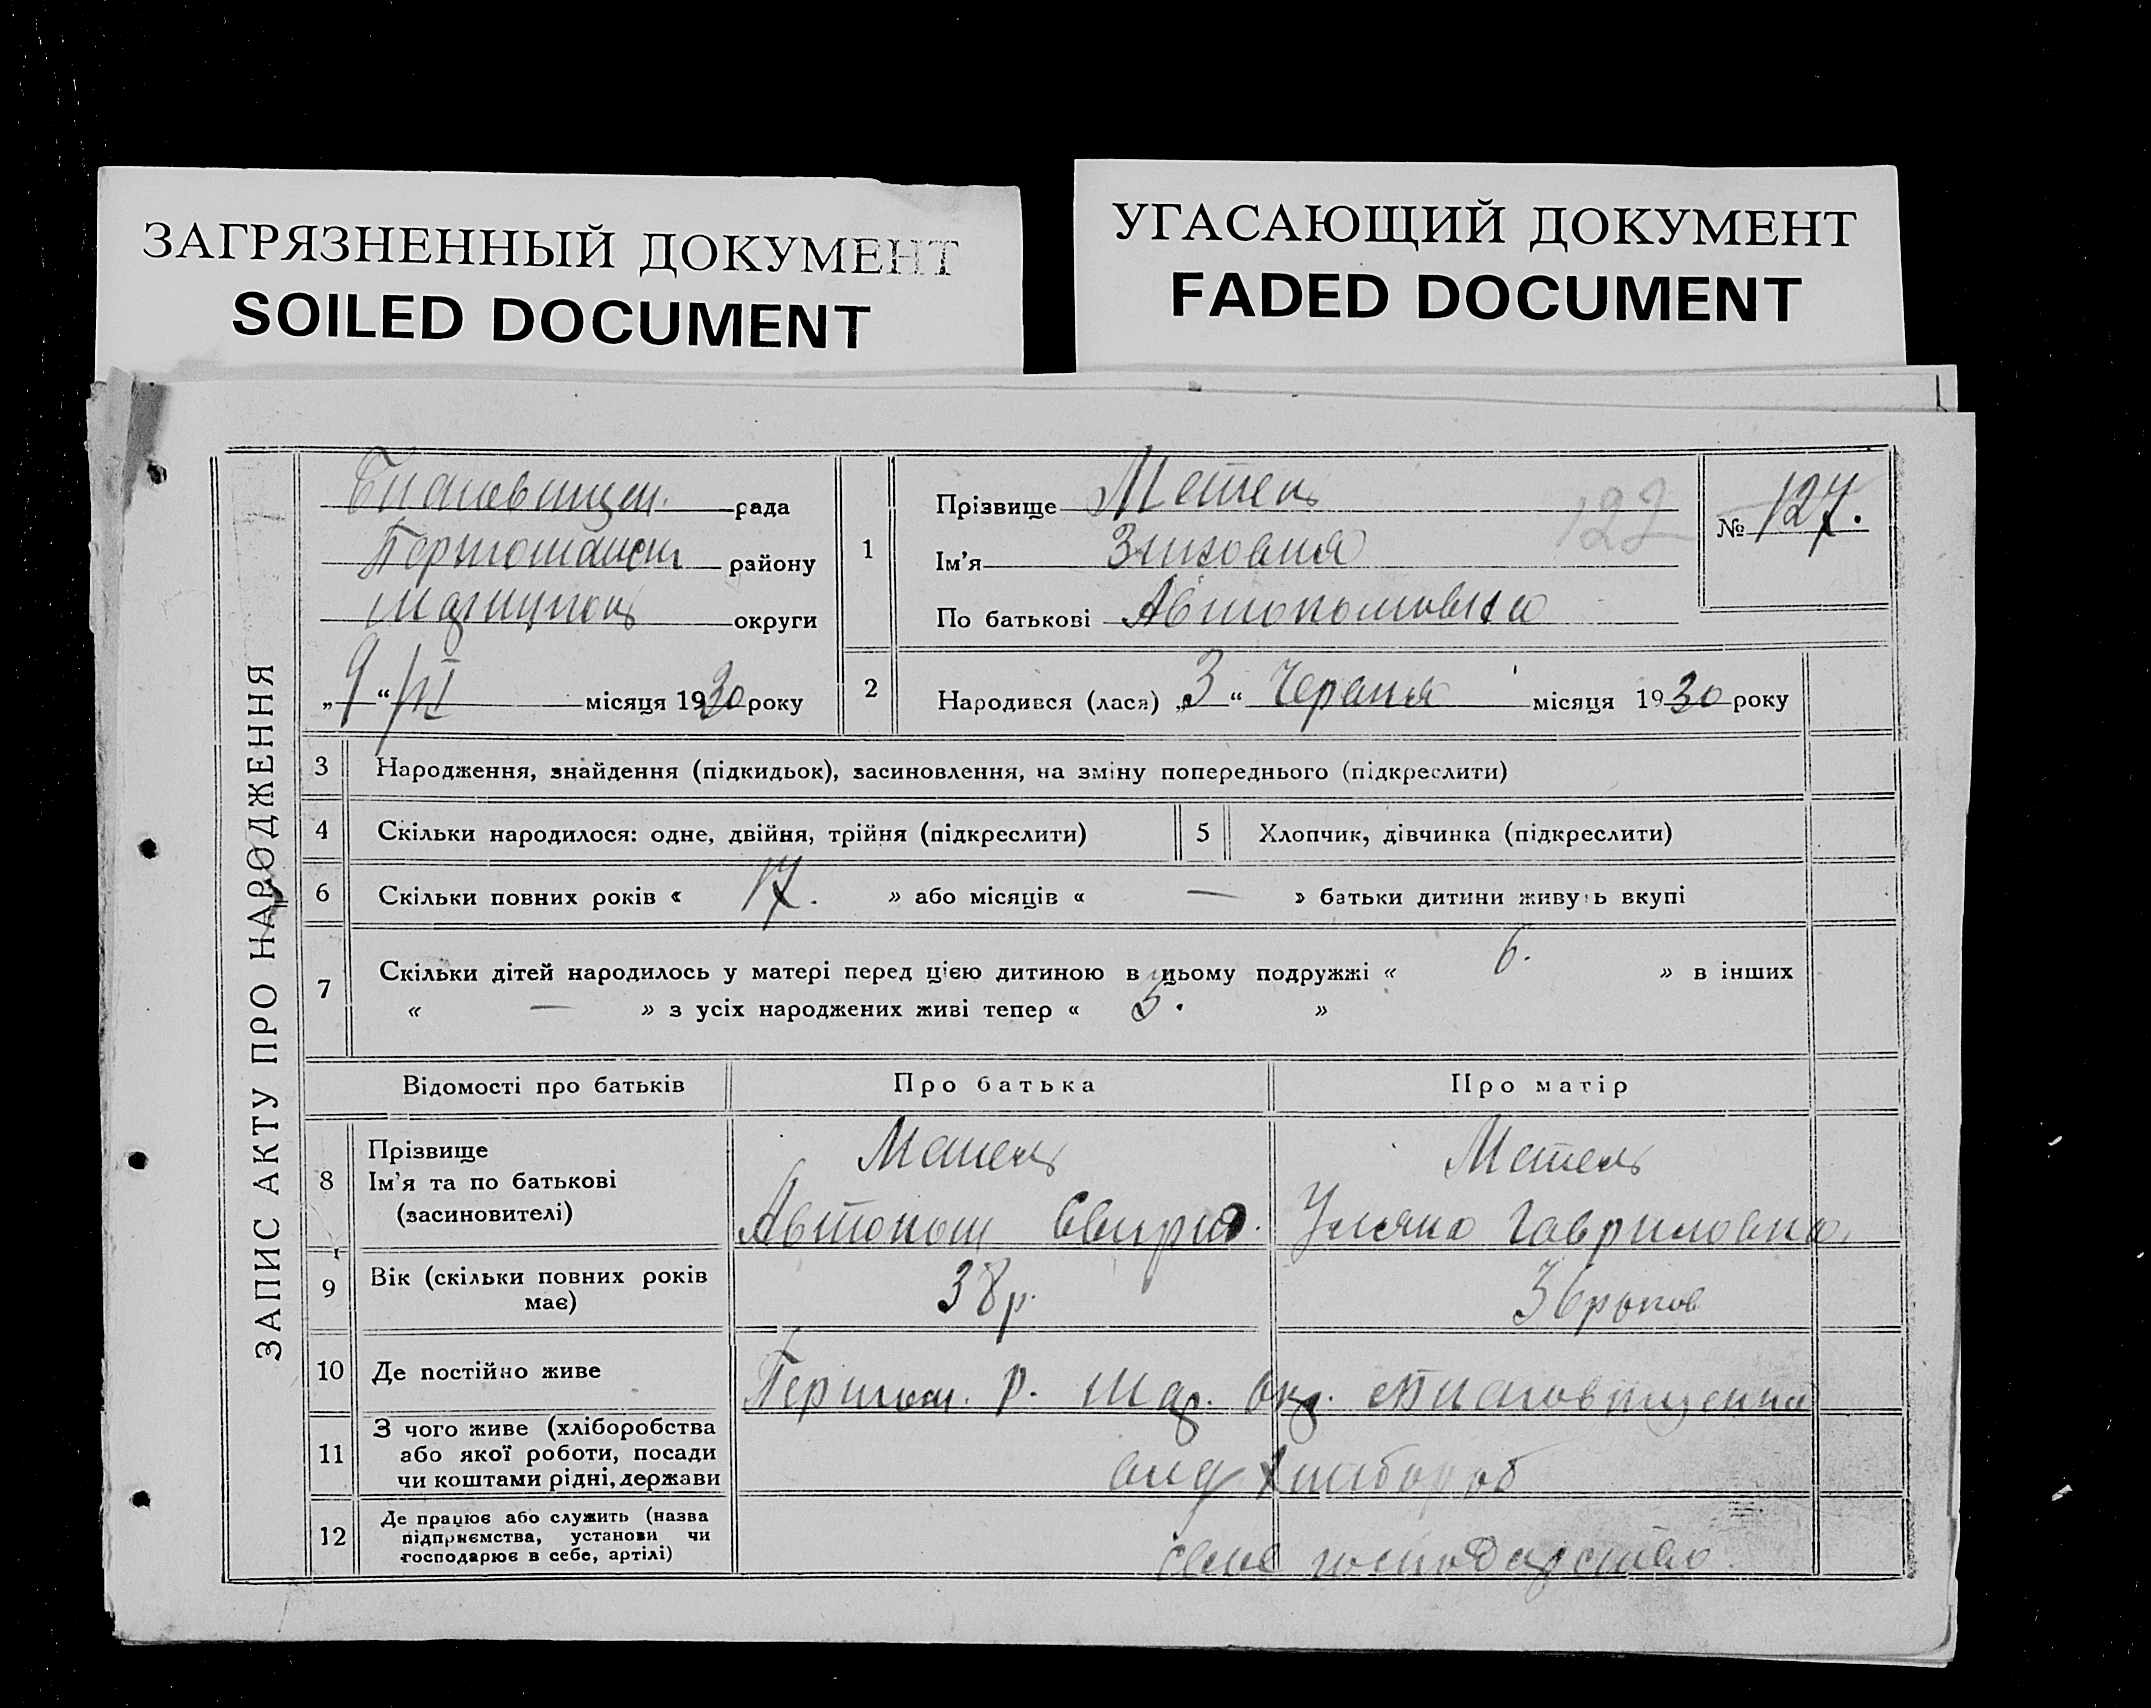 ЗАГРЯЗНЕННЫЙ ДОКУМЕНТ
SOILED DOCUMENT
УГАСАЮЩИЙ ДОКУМЕНТ
FADED DOCUMENT
ЗАПИС АКТУ ПРО НАРОДЖЕННЯ
рада
району
округи
„9“/VI місяця 1930 року
1
Прізвище Метель
Ім'я Зиновия
По батькові Автономовна
122
№ 127.
2
Народився (лася) „3“ Червня місяця 1930 року
3 Народження, знайдення (підкидьок), засиновлення, на зміну попереднього (підкреслити)
4 Скільки народилося: одне, двійня, трійня (підкреслити)
5 Хлопчик, дівчинка (підкреслити)
6 Скільки повних років « 17. » або місяців « — » батьки дитини живуть вкупі
7 Скільки дітей народилось у матері перед цією дитиною в цьому подружжі « 6. » в інших
« — » з усіх народжених живі тепер « 5. »
Відомості про батьків
Про батька
Про матір
8
Прізвище
Ім'я та по батькові
(засиновителі)
Метель
Автоном Свирид.
Метель
Уляна Гавриловна
9 Вік (скільки повних років
має)
38 р.
36 роков
10 Де постійно живе
р. Мар. Окр.
11
З чого живе (хліборобства
або якої роботи, посади
чи коштами рідні, держави
хлібороб
12
Де працює або служить (назва
підприємства, установи чи
господарює в себе, артілі)
своє господарство.